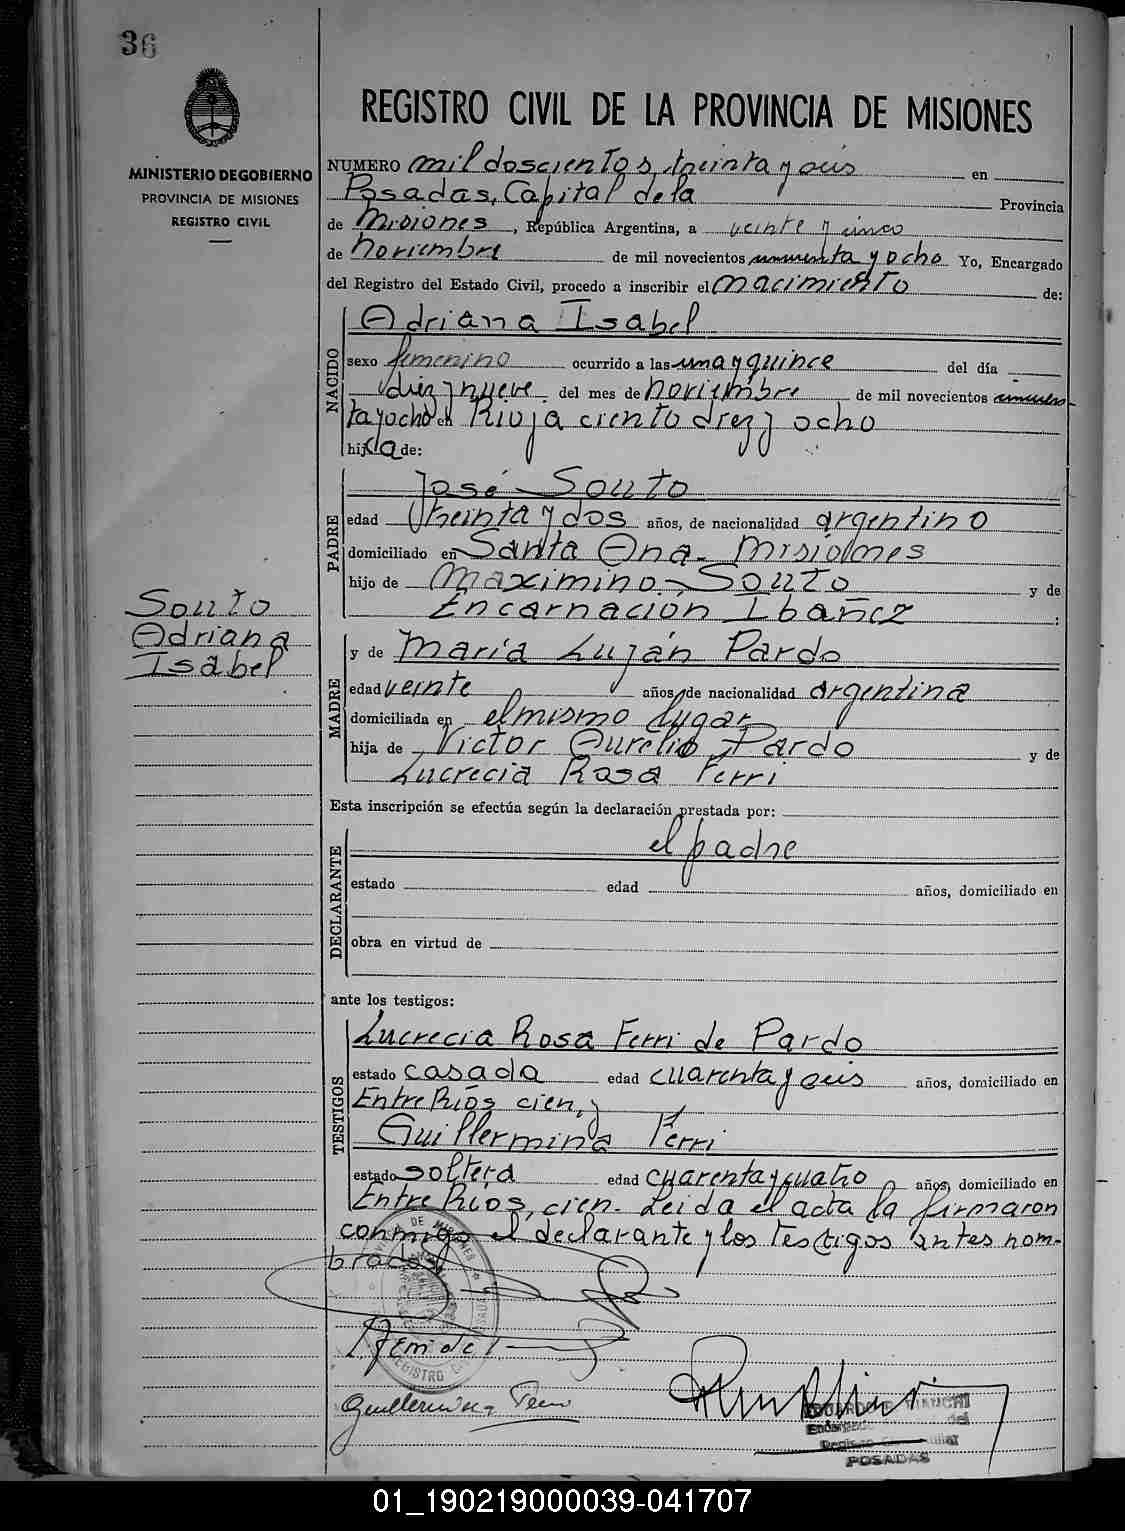 36
MINISTERIO DE GOBIERNO
PROVINCIA DE MISIONES
REGISTRO CIVIL
Souto
Adriana
Isabel
REGISTRO CIVIL DE LA PROVINCIA DE MISIONES
NUMERO mil doscientos, treinta y seis en
Posadas, Capital de la Provincia
de Misiones, República Argentina, a veinte y cinco
de Noviembre de mil novecientos cincuenta y ocho Yo, Encargado
del Registro del Estado Civil, procedo a inscribir el nacimiento de:
NACIDO
Adriana Isabel
sexo femenino ocurrido a las una y quince del día
diez y nueve del mes de Noviembre de mil novecientos cincuen
ta y ocho en Rioja ciento diez y ocho
hija de:
PADRE
José Souto
edad treinta y dos años, de nacionalidad argentino
domiciliado en Santa Ana - Misiones
hijo de Maximino Souto y de
Encarnación Ibañez :
MADRE
y de María Luján Pardo
edad veinte años, de nacionalidad argentina
domiciliada en el mismo lugar
hija de Victor Aurelio Pardo y de
Lucrecia Rosa Ferri
Esta inscripción se efectúa según la declaración prestada por:
DECLARANTE
el padre
estado edad años, domiciliado en
obra en virtud de
ante los testigos:
TESTIGOS
Lucrecia Rosa Ferri de Pardo
estado casada edad cuarenta y seis años, domiciliado en
Entre Ríos cien, y
Guillermina Ferri
estado soltera edad cuarenta y cuatro años, domiciliado en
Entre Ríos, cien. Leida el acta la firmaron
conmigo el declarante y los testigos antes nom-
brados
Guillermina Ferri
POSADAS
01_190219000039-041707